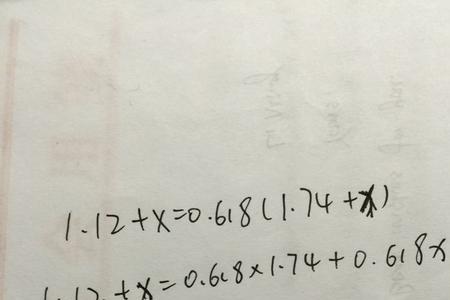 1.12+x=0.618(1.74+x)
1.12+x=0.618×1.74+0.618x